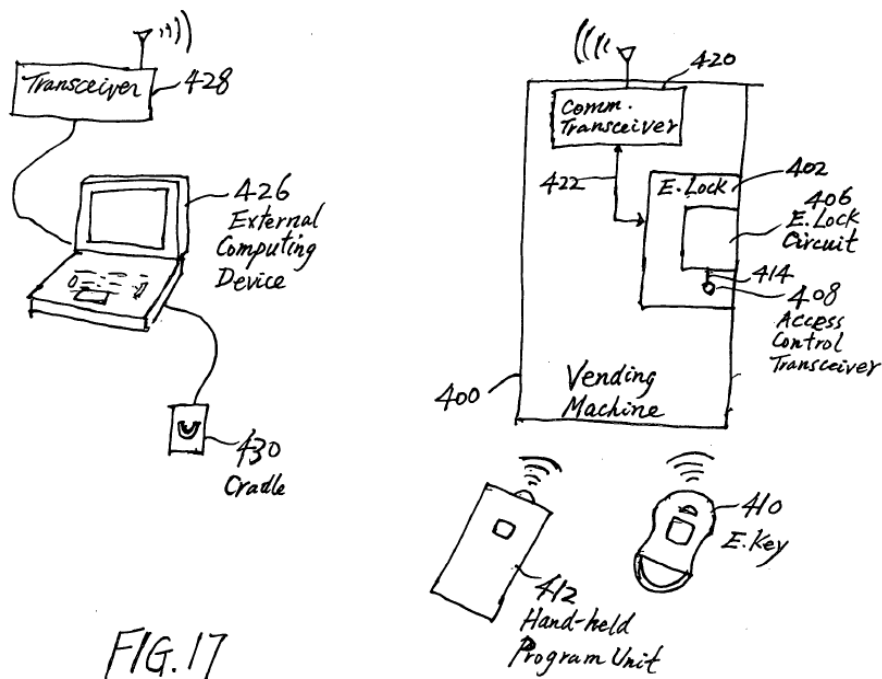 Transceiver
428
426
External
Computing
Device
430
Cradle
420
Comm.
Transceiver
422
E.Lock
402
406
E.Lock
Circuit
414
408
Access
Control
Transceiver
400
Vending
Machine
410
E.Key
412
Hand-held
Program Unit
FIG.17